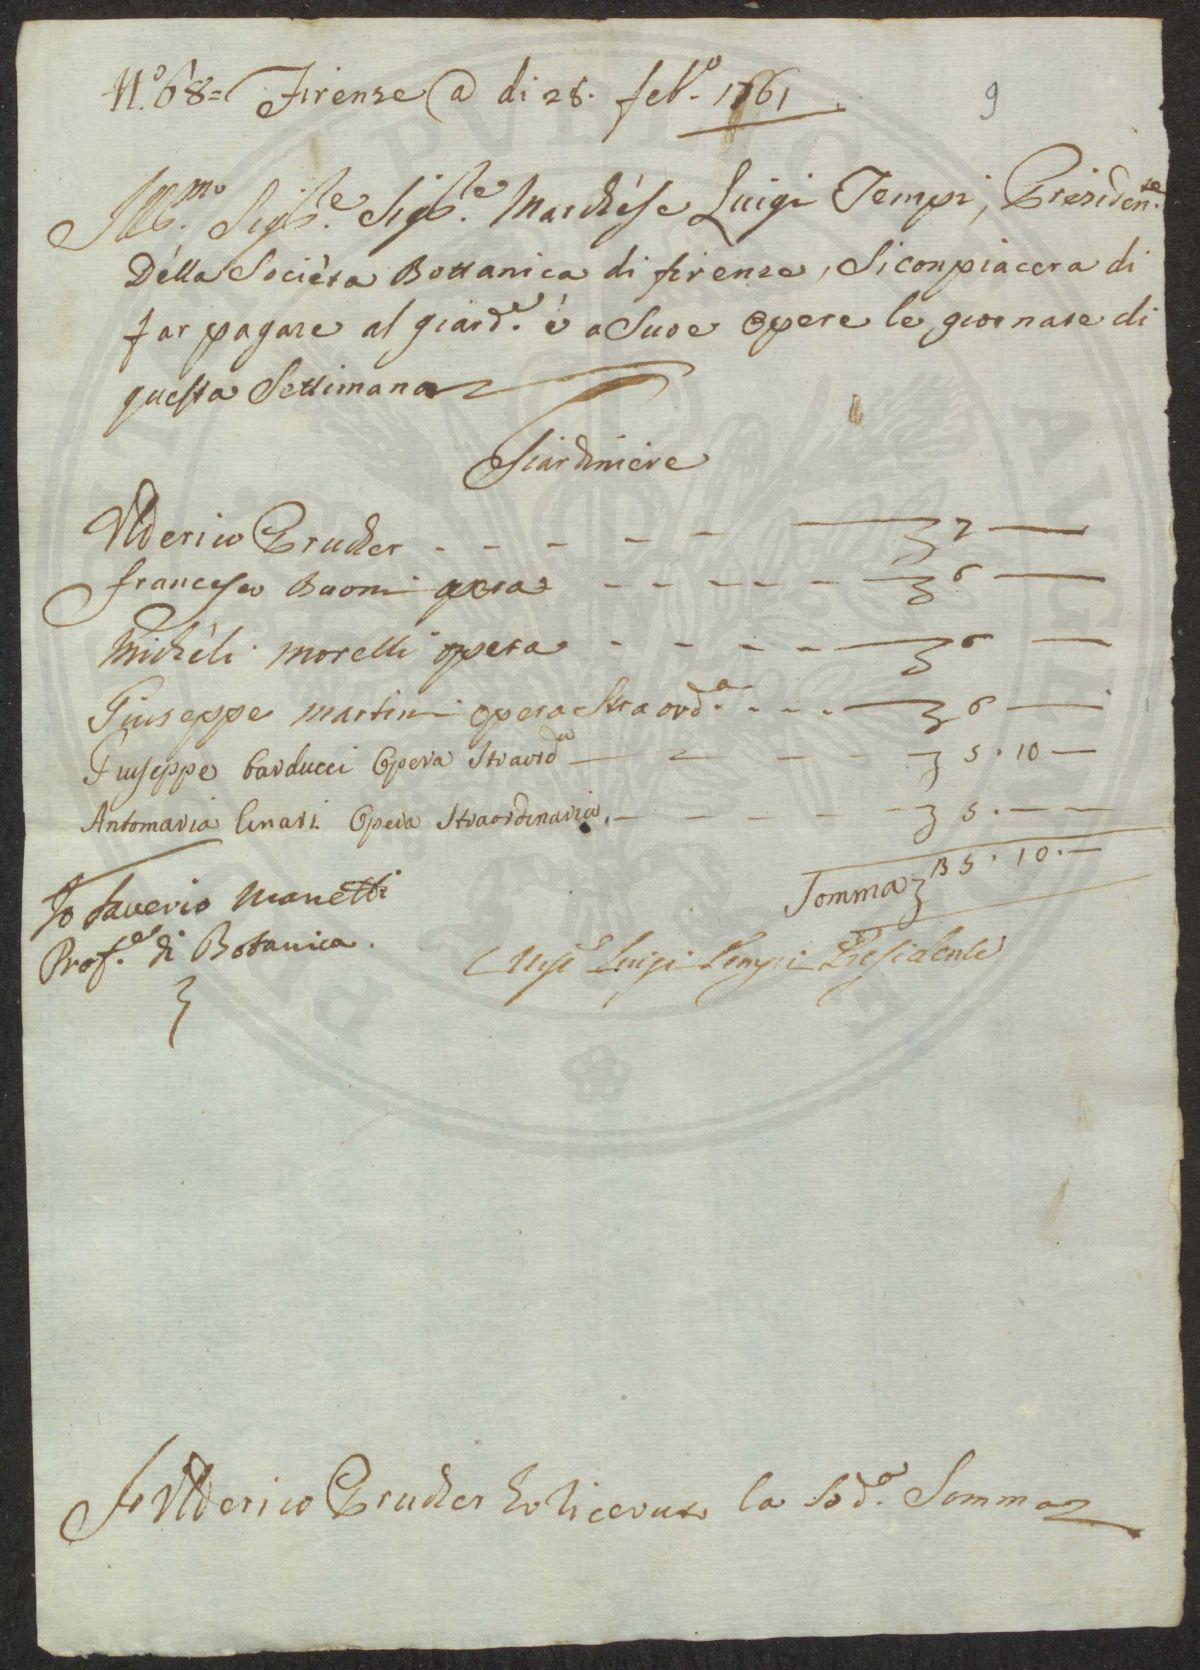 N.º 68= Firense @ di 28. feb.º 1761
9
Ill.mo Sig.re Sig.re Marchése Luigi Tempi, Présiden.te
Délla Sociéta Bottanica di firense, Si conpiacera di
far pagare al giard.e é a Suoe Opere le giornate di
questa Settimana
Giardiniere
Ulderico Prucher - - - - - 7 —
francesco Buoni opera - - - - - 6 —
Michéli morelli opera - - - - 6 —
Giuseppe martini opera Straord.a - - - 6 —
Giuseppe Carducci Opera Straord.a — - - - 5 . 10 —
Antomaria Linari Opera Straordinaria. - - - - - 5 . — —
Somma 35 . 10 . —
Io Saverio Manetti
Prof.e di Botanica.
Luigi Tempi Presidente
Io Ulderico Prucher ho riceuuto la Sod.a Somma